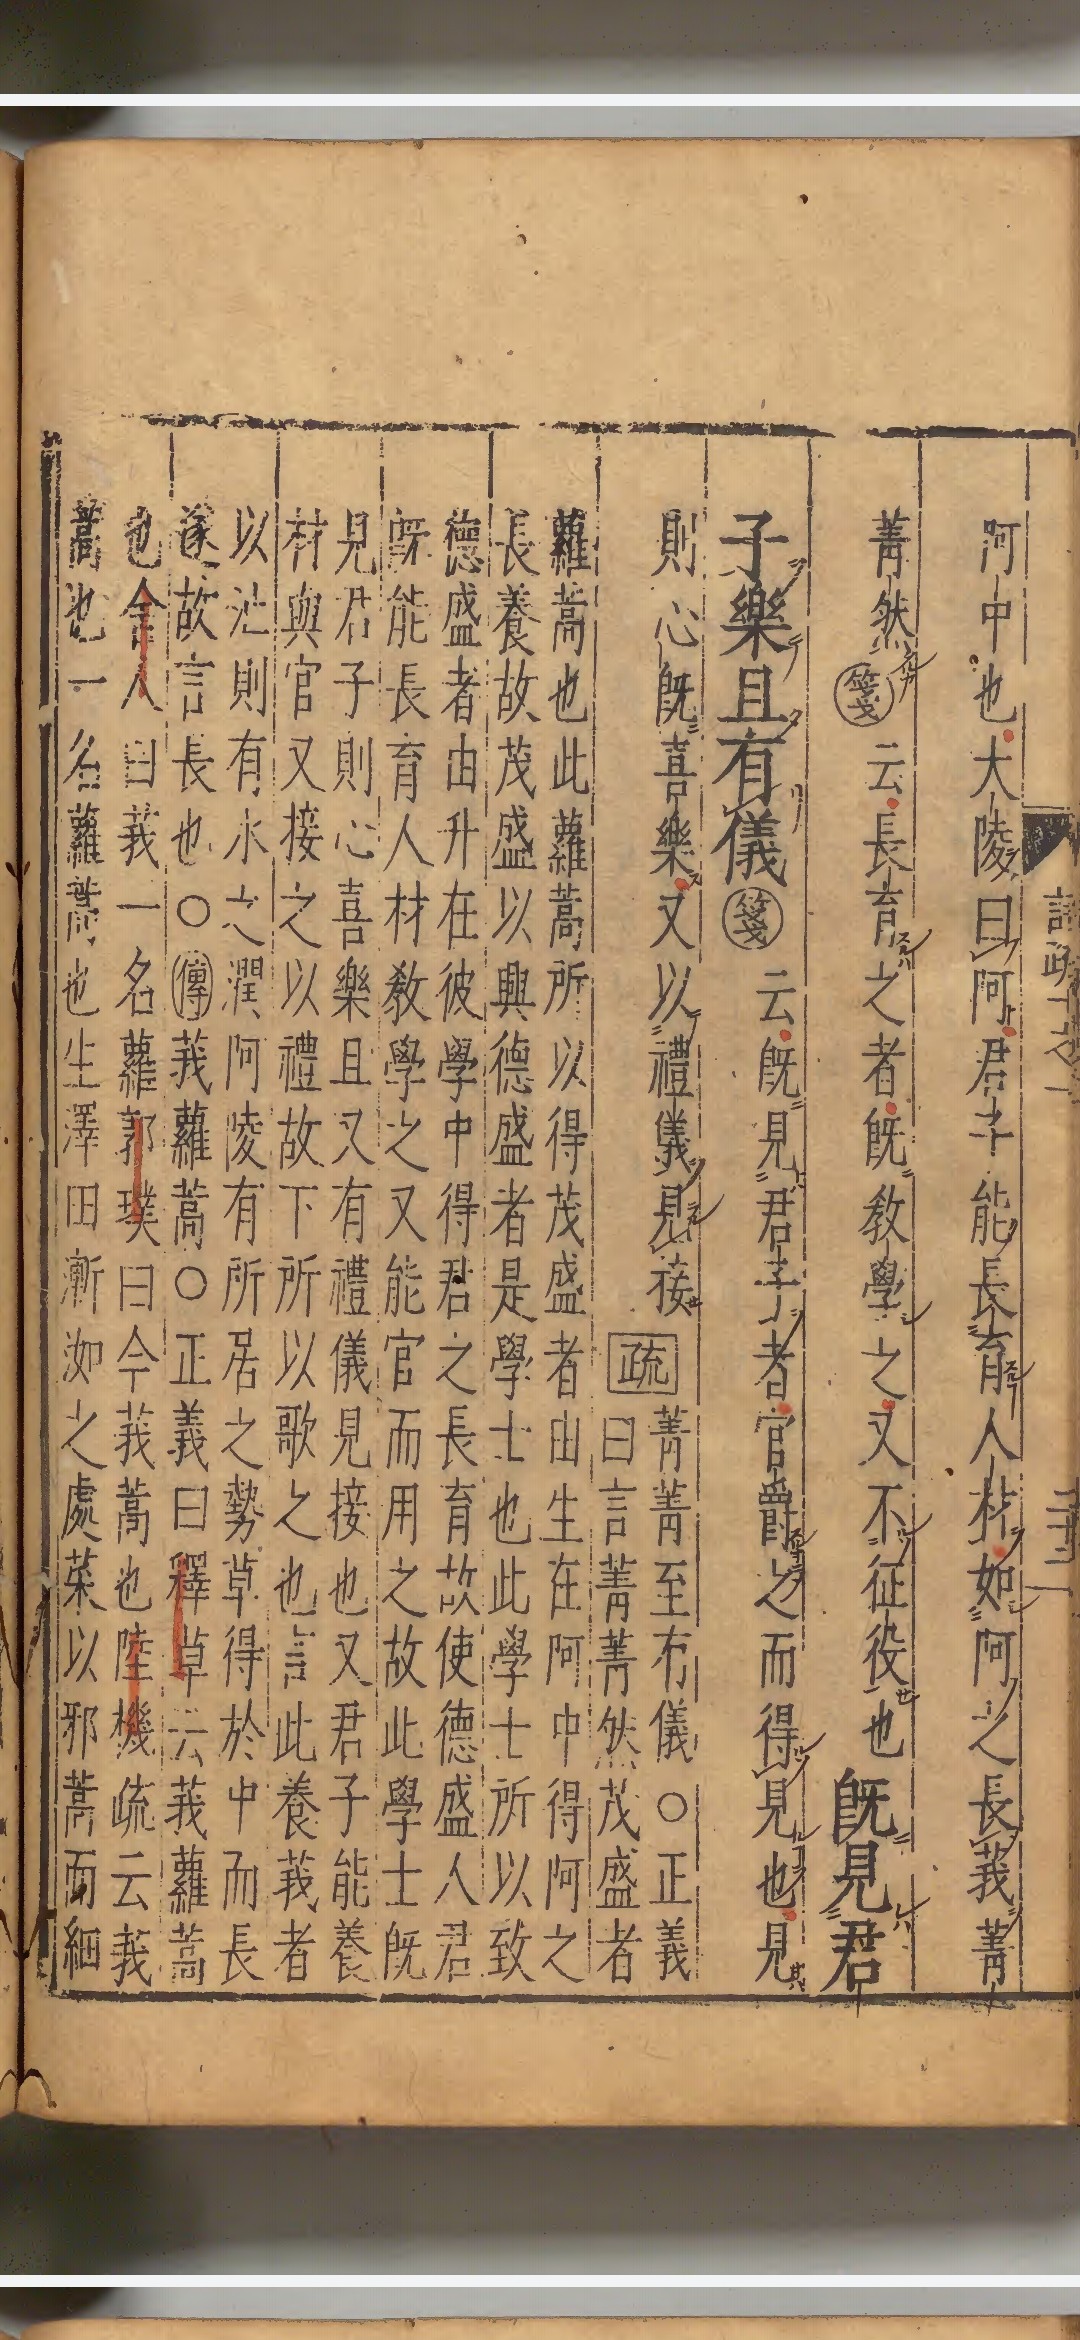 阿中也大陵曰阿君子能長育人材如阿之長莪菁
菁然箋云長育之者既教學之又不征役也既見君
子樂且有儀箋云既見君子者官爵之而得見也見
則心既喜樂又以禮儀見接疏
菁菁至有儀○正義
曰言菁菁然茂盛者
蘿蒿也此蘿蒿所以得茂盛者由生在阿中得阿之
長養故茂盛以興德盛者是學士也此學士所以致
德盛者由升在彼學中得君之長育故使德盛人君
既能長育人材教學之又能官而用之故此學士既
見君子則心喜樂且又有禮儀見接也又君子能養
材與官又接之以禮故下所以歌之也言此養莪者
以沚則有水之潤阿陵有所居之勢草得於中而長
遂故言長也○傳莪蘿蒿○正義曰釋草云莪蘿蒿
也舍人曰莪一名蘿郭璞曰今莪蒿也陸機疏云莪
蒿也一名蘿蒿也生澤田漸洳之處葉以邪蒿而細